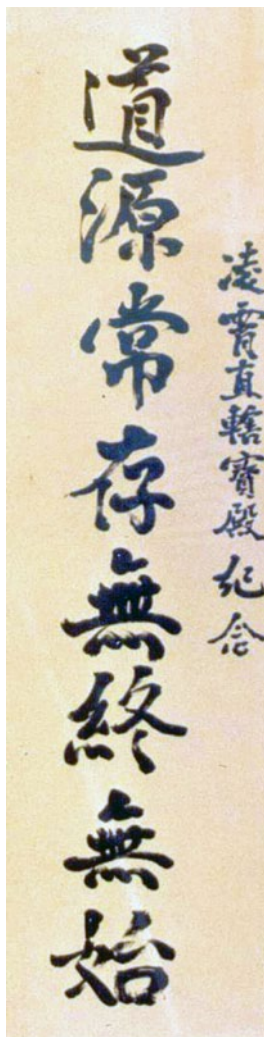 凌霄直轄寶殿紀念
道源常存無終無始